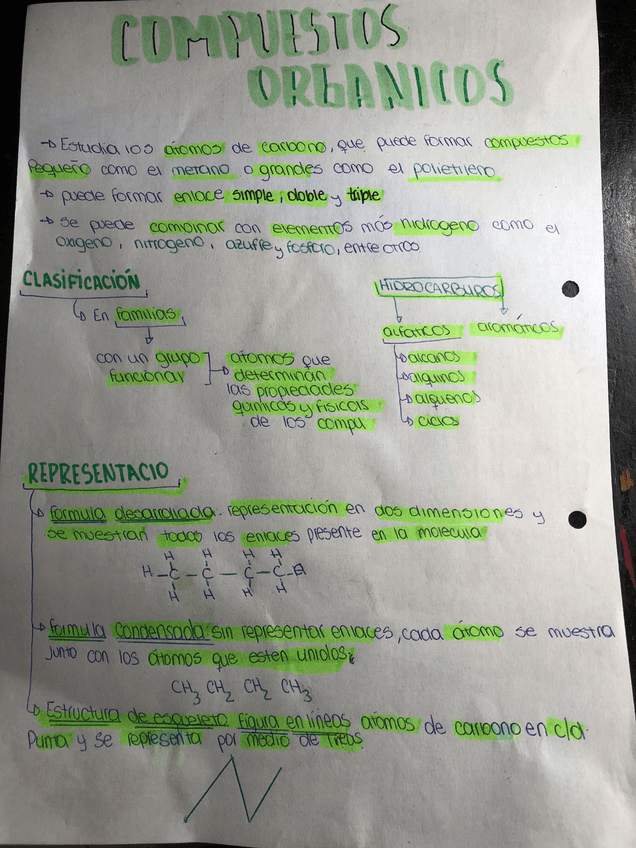 COMPUESTOS
ORGANICOS
→ Estudia los átomos de carbono, que puede formar compuestos
pequeño como el metano o grandes como el polietileno
→ puede formar enlace simple, doble y triple
→ se puede combinar con elementos más hidrogeno como el
oxigeno, nitrogeno, azufre y fosforo, entre otros
CLASIFICACIÓN
En familias
con un grupo
funcional
átomos que
determinan
las propiedades
químicas y físicas
de los compu
HIDROCARBUROS
alifaticos
aromáticos
alcanos
alquinos
alquenos
ciclos
REPRESENTACIO
Formula desarrollada. representación en dos dimensiones y
se muestran todos los enlaces presente en la molecula
H H H H
H-C-C-C-C-H
H H H H
Formula condensada: sin representar enlaces, cada átomo se muestra
junto con los átomos que esten unidos
CH3 CH2 CH2 CH3
Estructura de esqueleto figura en lineas atomos de carbono en c/d
Punta y se representa por medio de